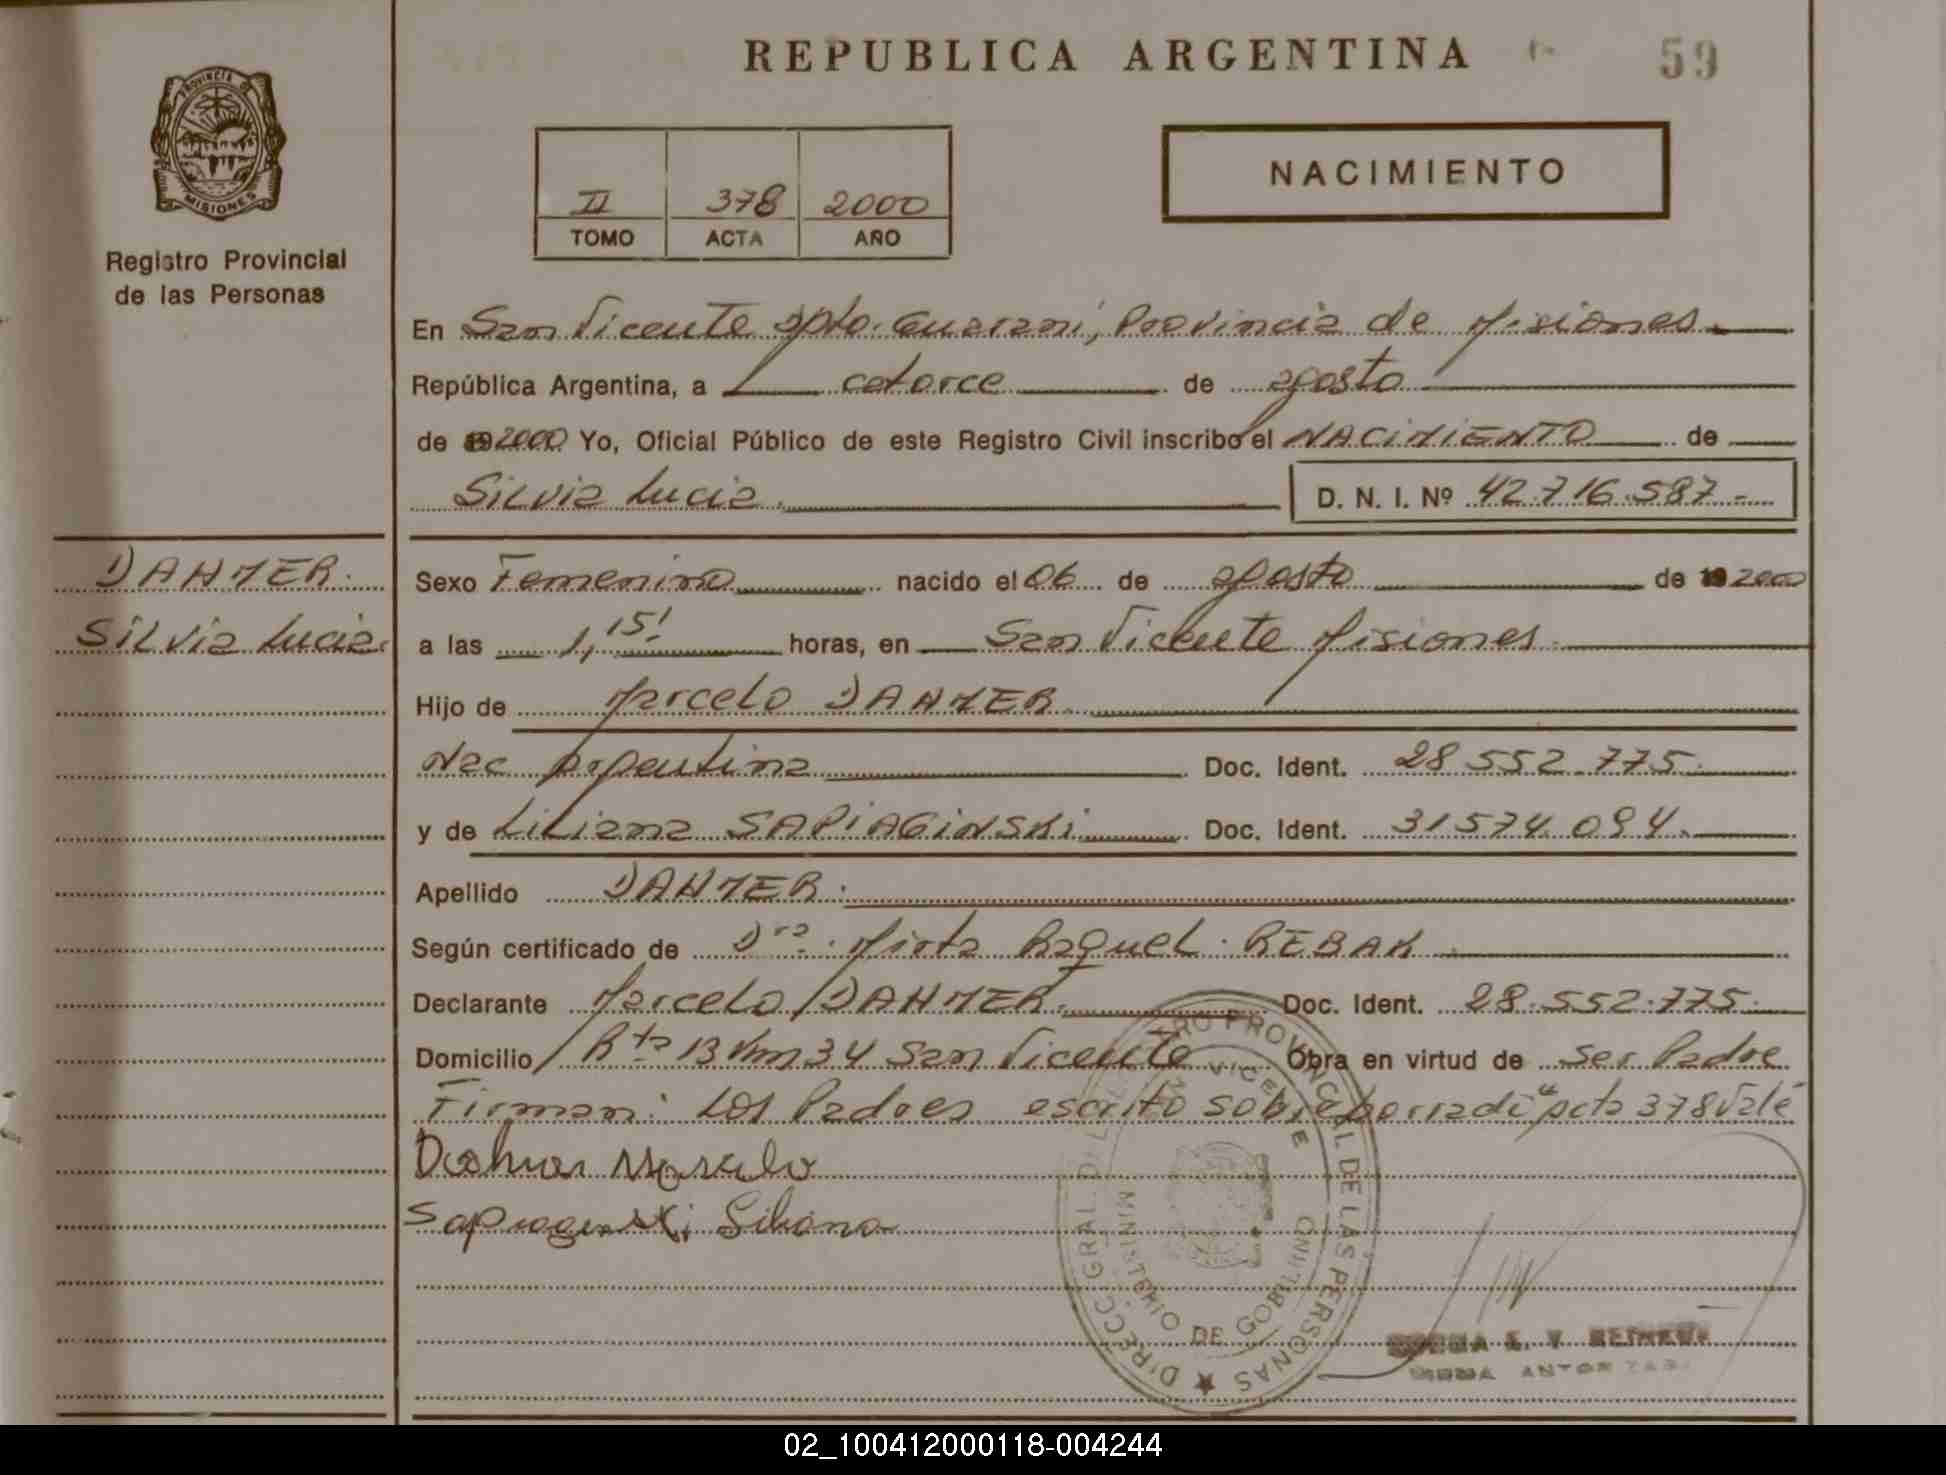 REPUBLICA ARGENTINA 59
PROVINCIA DE MISIONES
Registro Provincial
de las Personas
II 378 2000
TOMO ACTA AÑO
NACIMIENTO
En San Vicente Dpto. Guarani, Provincia de Misiones
República Argentina, a catorce de agosto
de 19 2000 Yo, Oficial Público de este Registro Civil inscribo el NACIMIENTO de
Silvia Lucia. D. N. I. Nº 42.716.587-
DAHMER.
Silvia Lucia.
Sexo Femenino nacido el 06 de agosto de 19 2000
a las 1,15' horas, en San Vicente Misiones.
Hijo de Marcelo DAHMER.
Nac Argentina Doc. Ident. 28.552.775.
y de Liliana SAPIAGINSKI Doc. Ident. 31.574.094.
Apellido DAHMER.
Según certificado de Dra. Mirta Raquel REBAK.
Declarante Marcelo DAHMER. Doc. Ident. 28.552.775.
Domicilio Rta 13 Km 34 San Vicente Obra en virtud de ser Padre
Firman: Los Padres escrito sobreborrado "acta 378 Vale
Dahmer Marcelo
Sapiaginski Liliana
DIRECC. GRAL. DEL REGISTRO PROVINCIAL DE LAS PERSONAS
MINISTERIO DE GOBIERNO
SAN VICENTE
02_100412000118-004244